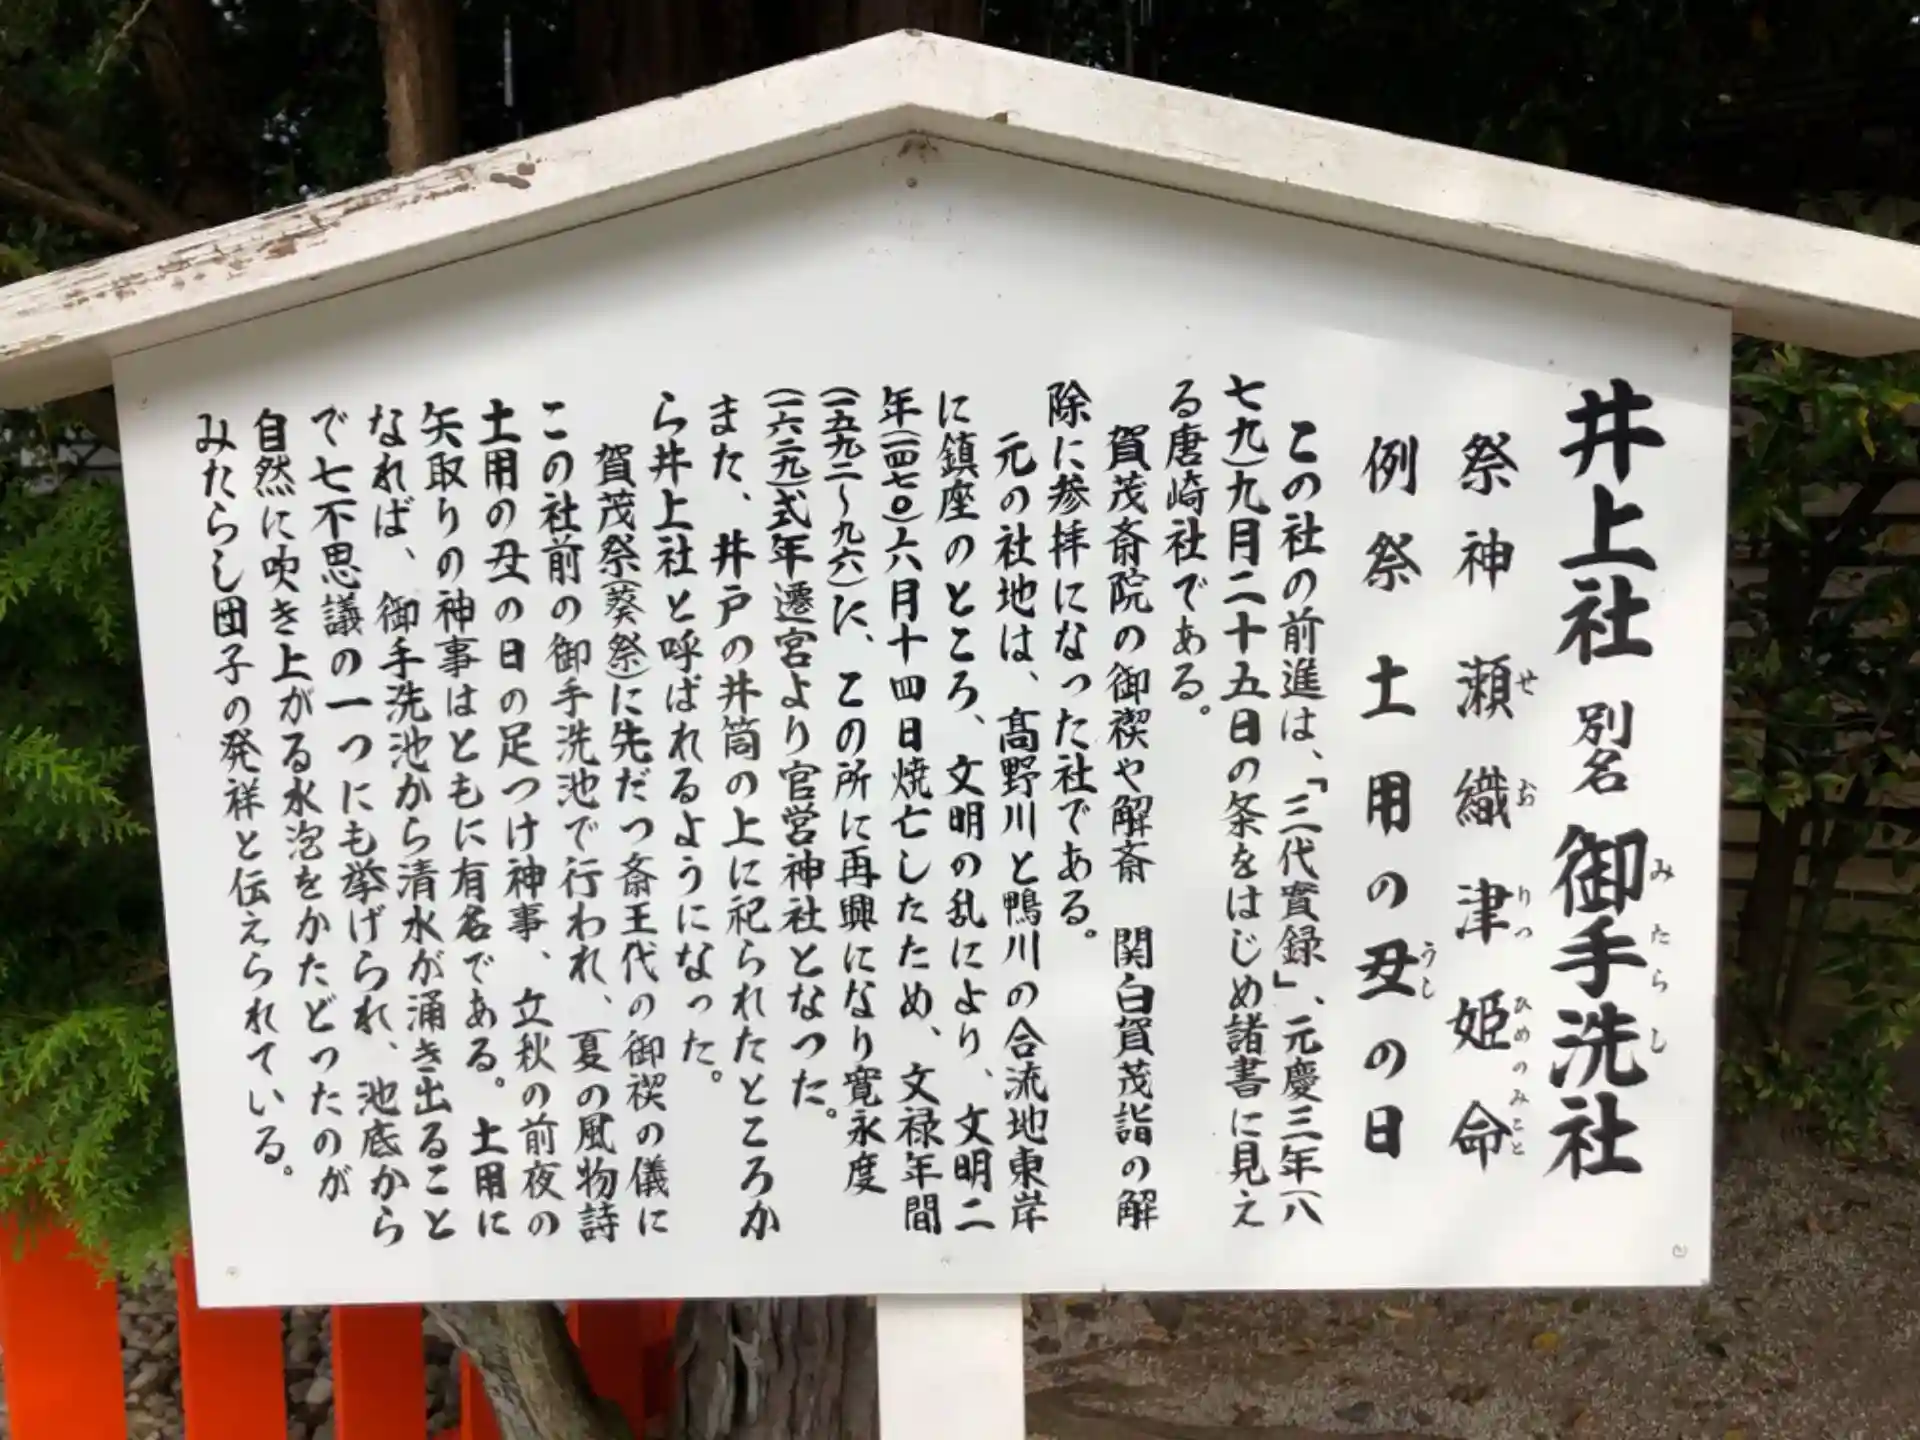 井上社 別名 御手洗社
みたらし
祭神 瀬織津姫命
せおりつひめのみこと
例祭 土用の丑の日
うし
この社の前進は、「三代實録」、元慶三年(八
七九)九月二十五日の条をはじめ諸書に見え
る唐崎社である。
賀茂斎院の御禊や解斎 関白賀茂詣の解
除に参拝になった社である。
元の社地は、髙野川と鴨川の合流地東岸
に鎮座のところ、文明の乱により、文明二
年(一四七〇)六月十四日焼亡したため、文禄年間
(一五九二〜九六)に、この所に再興になり寛永度
(一六二九)式年遷宮より官営神社となつた。
また、井戸の井筒の上に祀られたところか
ら井上社と呼ばれるようになった。
賀茂祭(葵祭)に先だつ斎王代の御禊の儀に
この社前の御手洗池で行われ、夏の風物詩
土用の丑の日の足つけ神事、立秋の前夜の
矢取りの神事はともに有名である。土用に
なれば、御手洗池から清水が涌き出ること
で七不思議の一つにも挙げられ、池底から
自然に吹き上がる水泡をかたどったのが
みたらし団子の発祥と伝えられている。